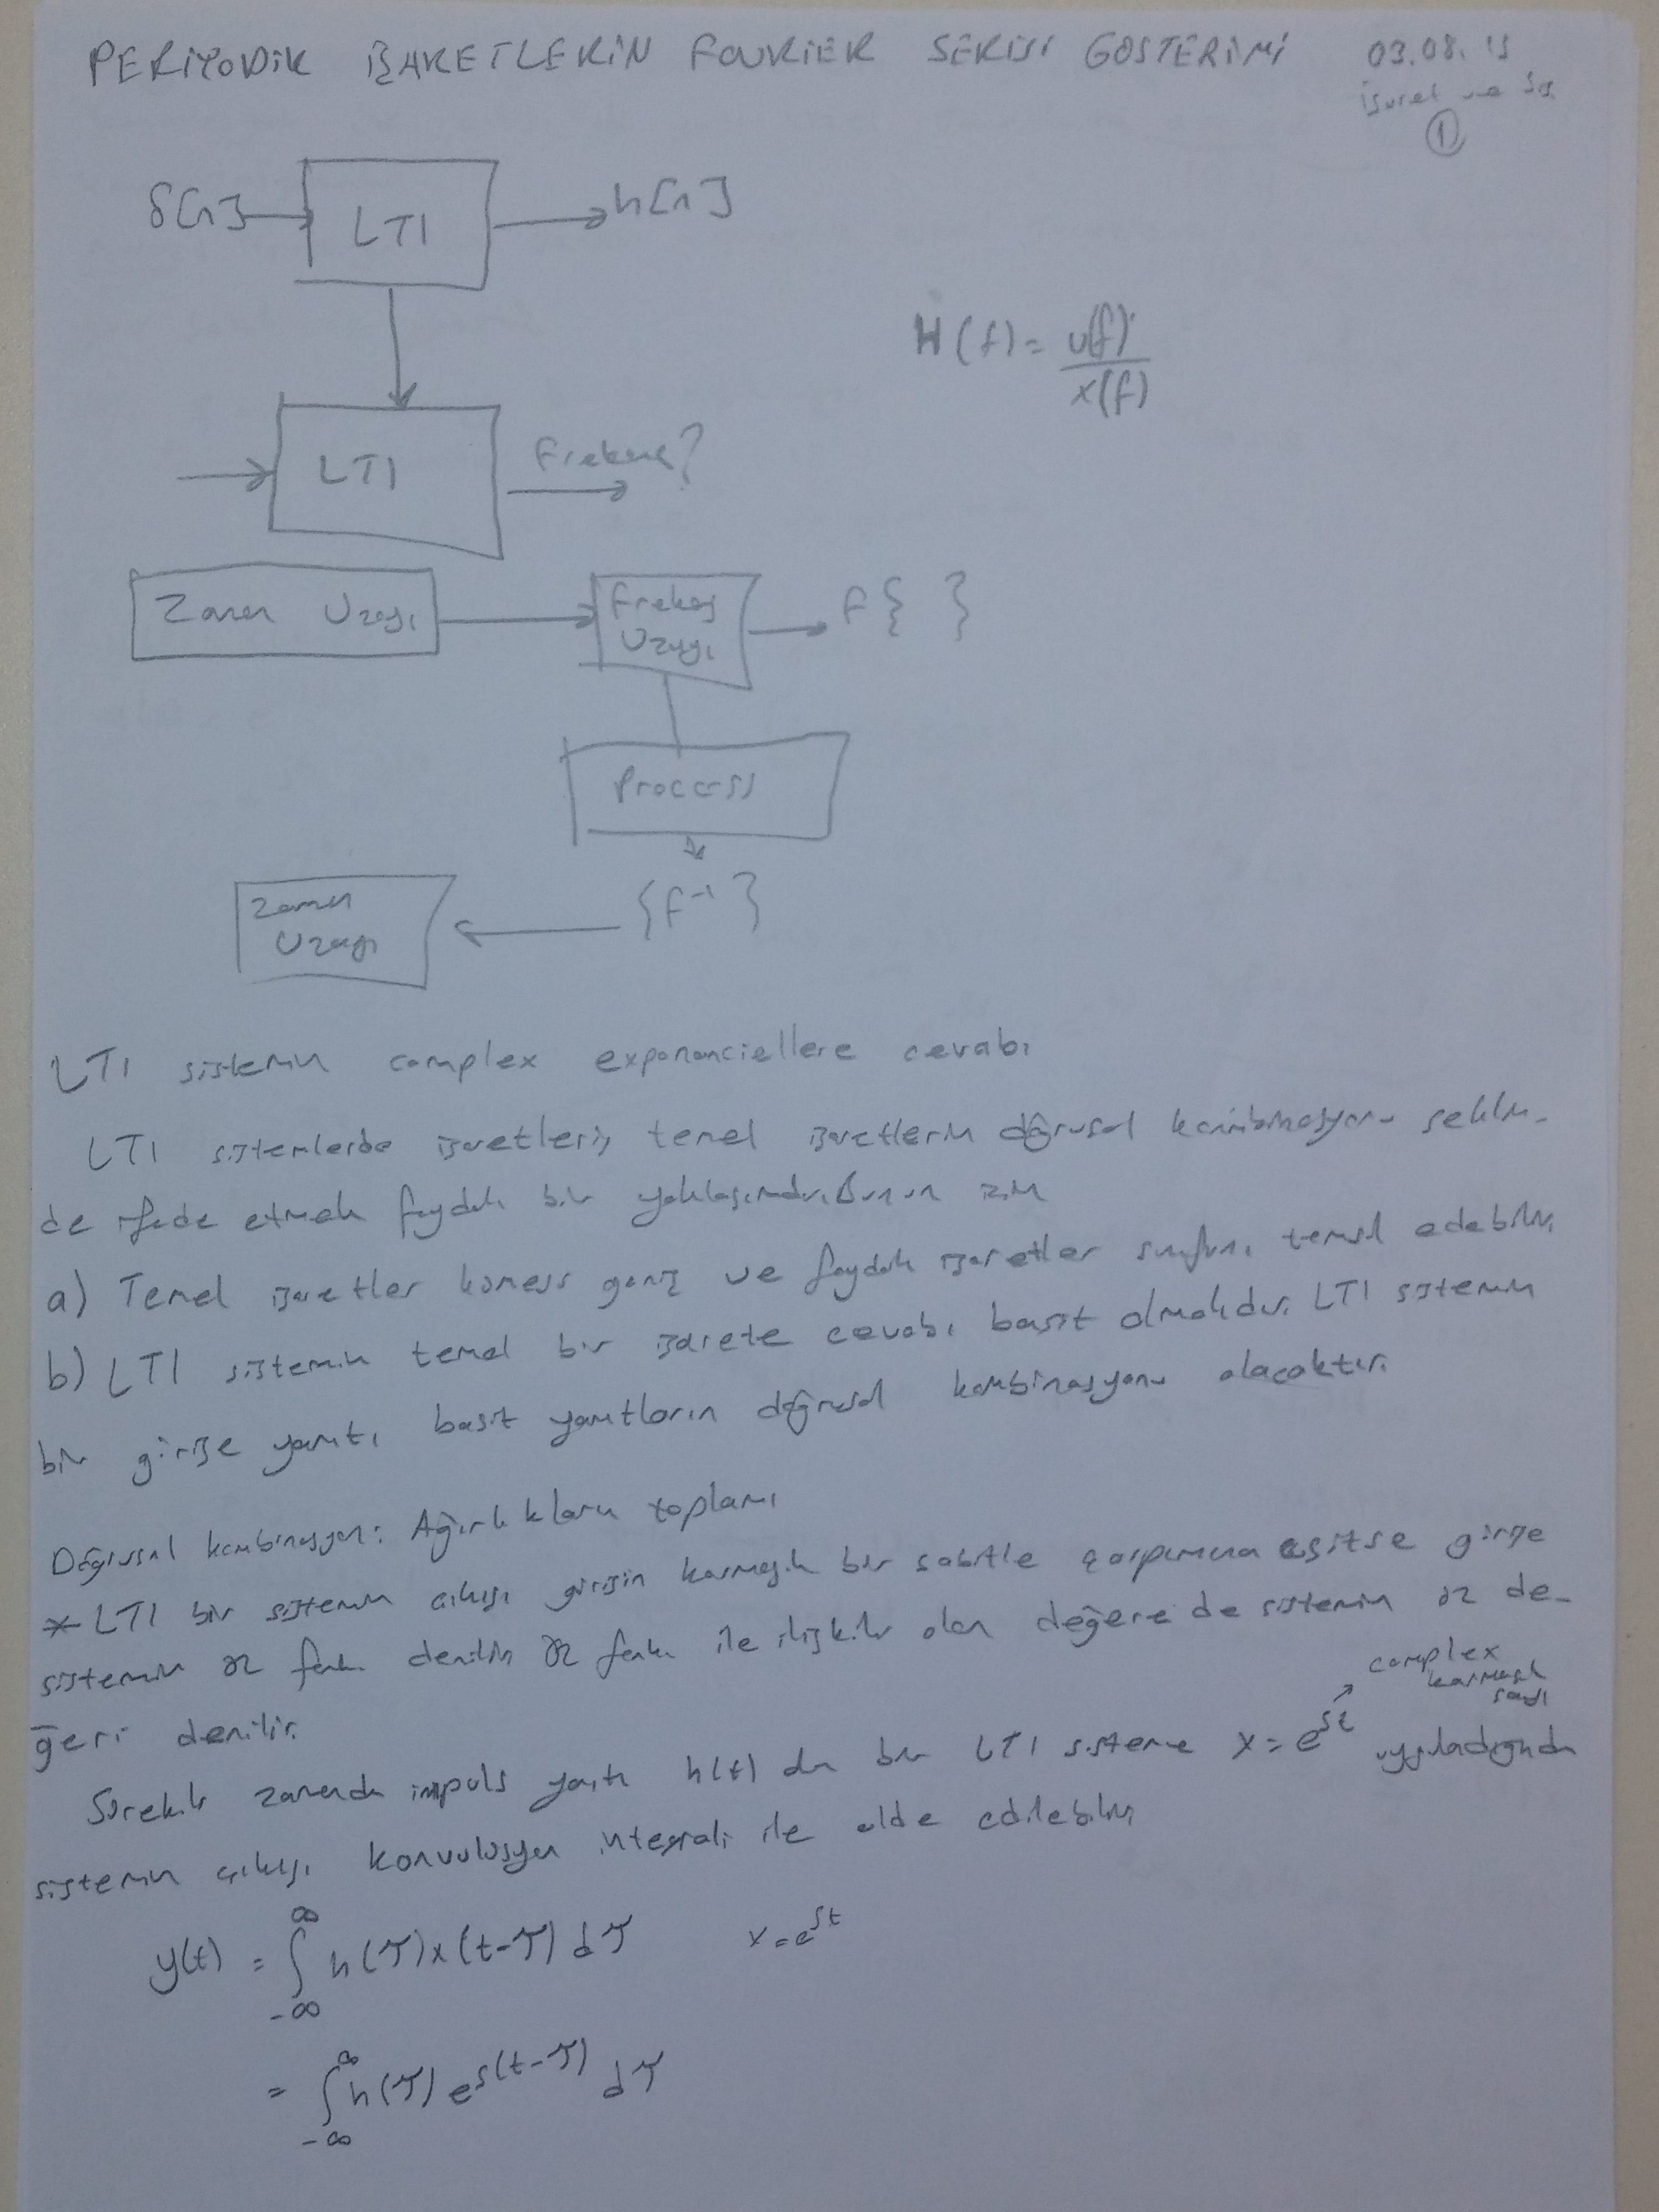 PERİYODİK İŞARETLERİN FOURİER SERİSİ GÖSTERİMİ
03.08.15
işaret ve Sis.
①
δ[n] LTI h[n]
H(f) = y(f) / x(f)
LTI Frekans?
Zaman Uzayı Frekans Uzayı F{ }
Process
Zaman Uzayı {F⁻¹}
LTI sistemin complex exponanciellere cevabı
LTI sistemlerde işaretleri, temel işaretlerin doğrusal kombinasyonu şeklin-
de ifade etmek faydalı bir yaklaşımdır. Bunun için
a) Temel işaretler kümesi geniş ve faydalı işaretler sınıfını temsil edebilir.
b) LTI sistemin temel bir işarete cevabı basit olmalıdır. LTI sistemin
bir girişe yanıtı, basit yanıtların doğrusal kombinasyonu olacaktır.
Doğrusal kombinasyon: Ağırlıkların toplamı
* LTI bir sistemin çıkışı girişin karmaşık bir sabitle çarpımına eşitse girişe
sistemin öz fonk. denilir. Öz fonk ile ilişkili olan değere de sistemin öz de-
ğeri denilir.
complex karmaşık sayı
Sürekli zamanda impuls yanıtı h(t) olan bir LTI sisteme x = e^{st} uyguladığında
sistemin çıkışı konvulusyon integrali ile elde edilebilir
y(t) = ∫_{-∞}^{∞} h(τ)x(t-τ)dτ x = e^{st}
= ∫_{-∞}^{∞} h(τ) e^{s(t-τ)} dτ